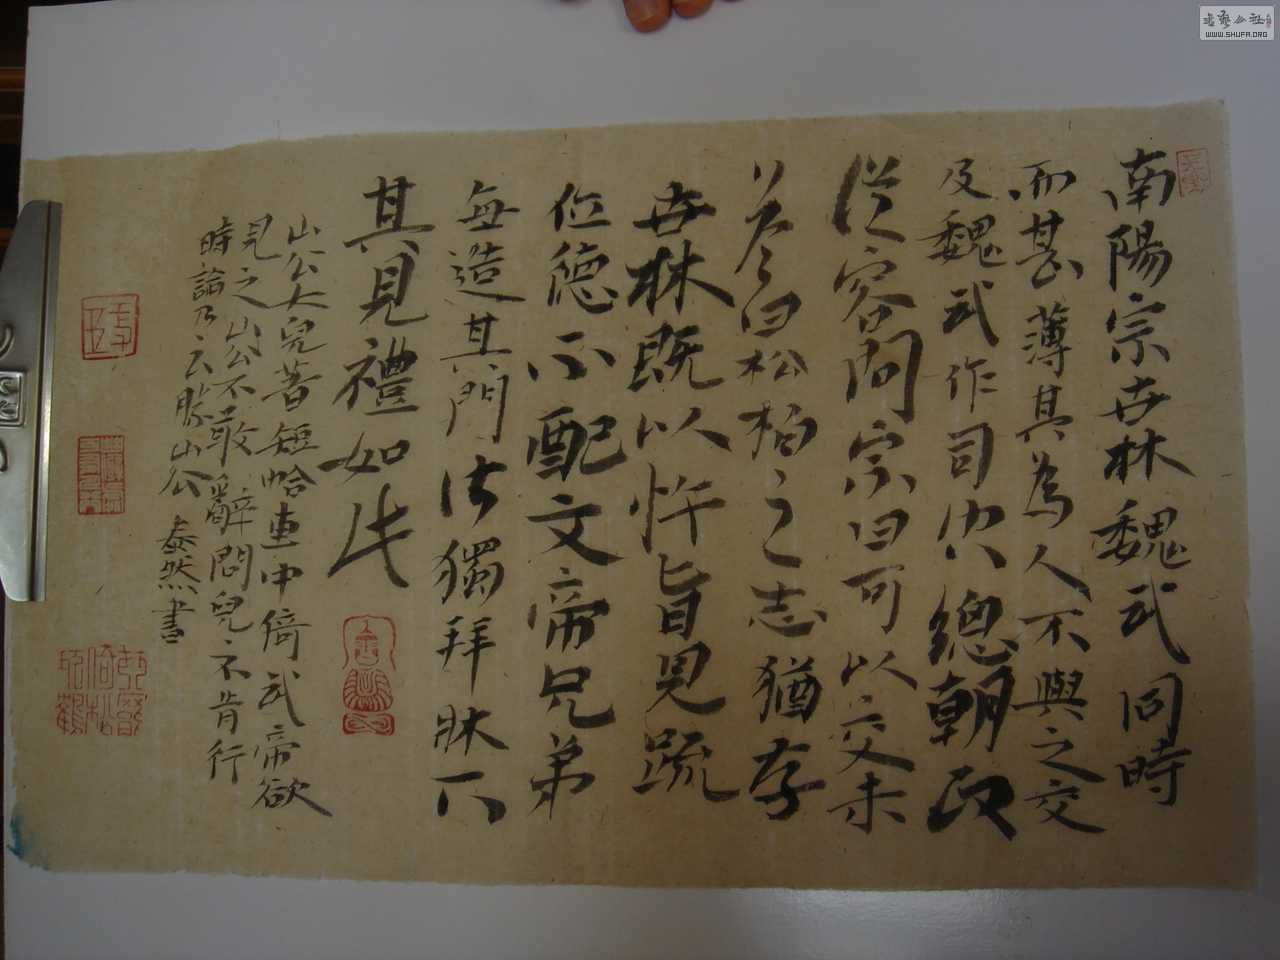 南陽宗世林魏武同時
而甚薄其為人不與之交
及魏武作司空總朝政
從容問宗曰可以交未
答曰松柏之志猶存
世林既以忤旨見疏
位德不配文帝兄弟
每造其門皆獨拜牀下
其見禮如此
山公大兒著短帢車中倚武帝欲
見之山公不敢辭問兒〻不肯行
時論乃云勝山公 泰然書
书艺公社
WWW.SHUFA.ORG